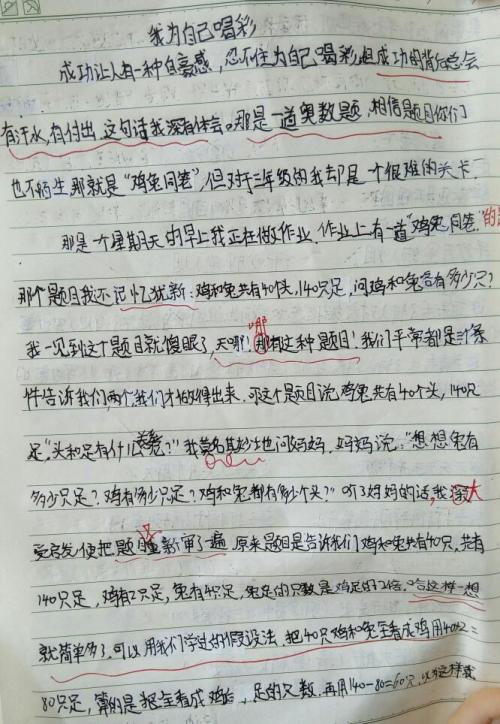 我为自己喝彩
成功让人有一种自豪感，忍不住为自己喝彩，但成功的背后总会
有汗水，有付出，这句话我深有体会。那是一道奥数题，相信题目你们
也不陌生那就是“鸡兔同笼”，但对于三年级的我却是一个很难的关卡．
那是一个星期天的早上我正在做作业．作业上有一道“鸡兔同笼”的题
那个题目我还记忆犹新：鸡和兔共有40个头，140只足，问鸡和兔各有多少只？
我一见到这个题目就傻眼了，天哪！“那有这种题目！我们平常都是
件告诉我们两个，我们才做得出来．可这个题目说鸡兔共有40个头，140只
足，“头和足有什么关系？”我莫名其妙地问妈妈．妈妈说：“想想兔有
多少只足？鸡有多少只足？鸡和兔都有多少个头？”听了妈妈的话，我大
受启发便把题目重新审了一遍．原来题目是告诉我们鸡和兔共有40只，共有
140只足，鸡有2只足，兔有4只足，兔足的只数是鸡足的2倍．这样一想
就简单多了．可以用我们学过的假设法．把40只鸡和兔全看成鸡用40×2=
80只足，算的是把全看成鸡后，足的只数．再用140-80=60只，